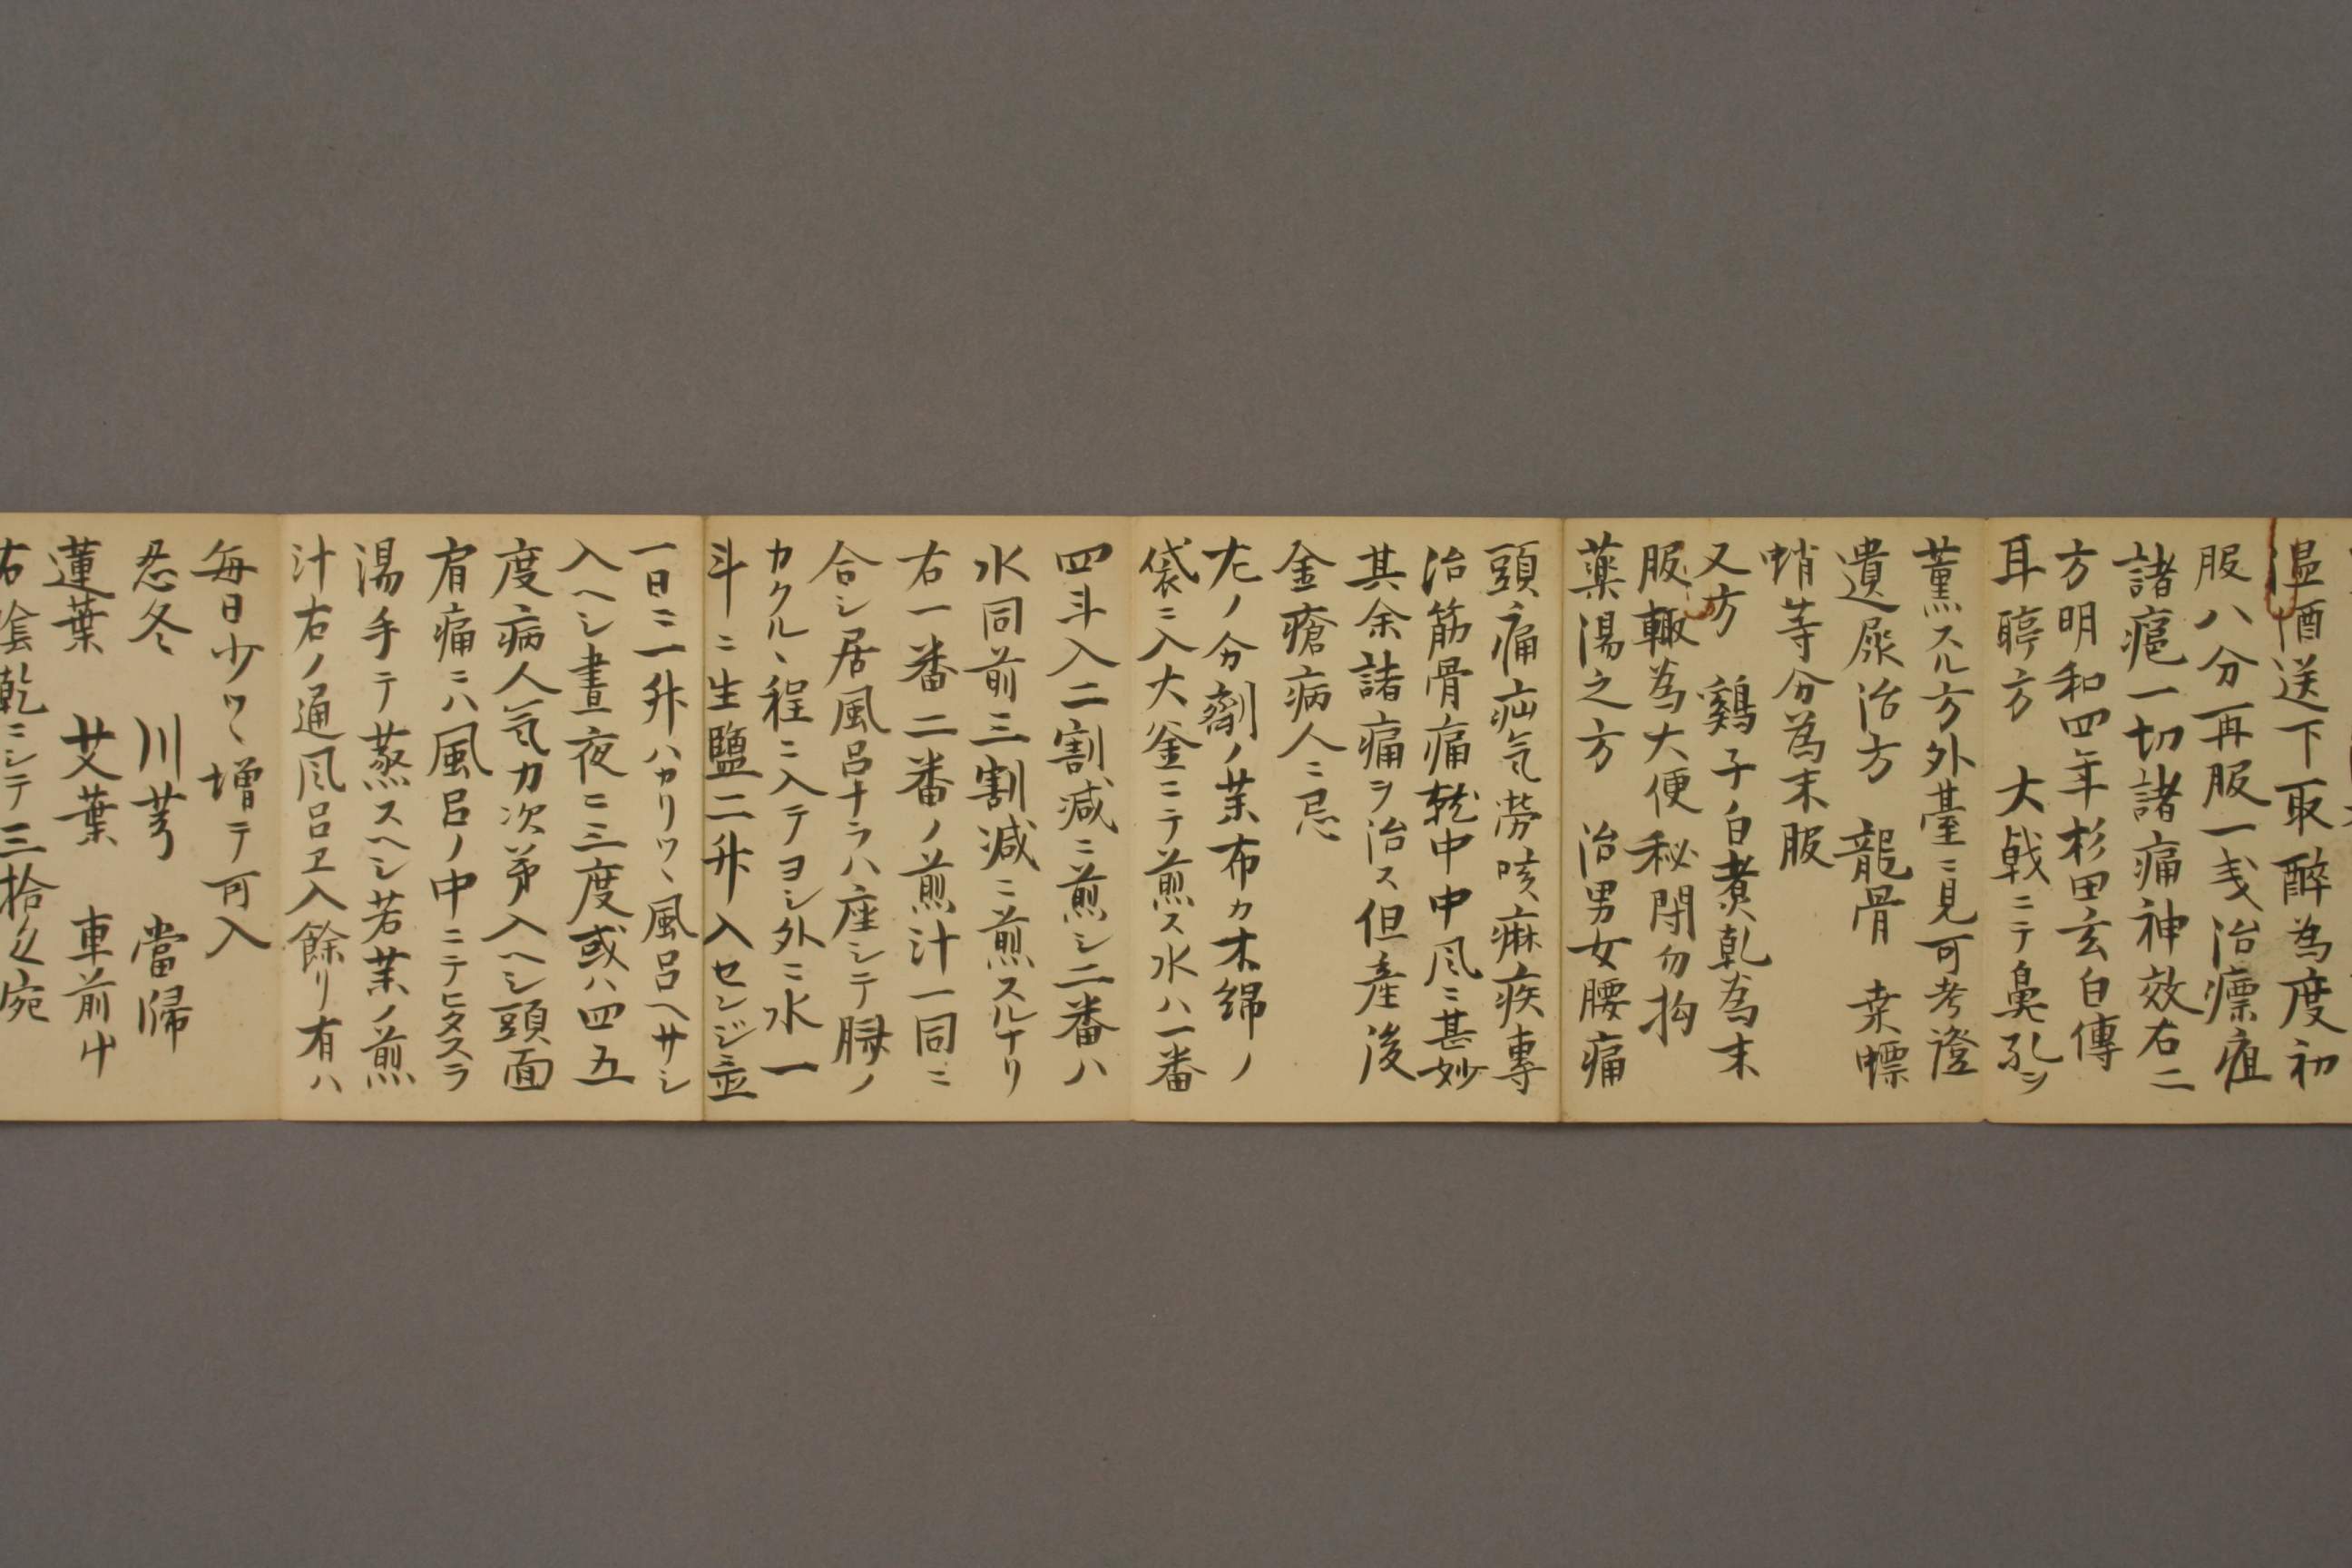 温酒送下取酔為度初
服八分再服一戔治瘭疽
諸瘡一切諸痛神效右二
方明和四年杉田玄白傳
耳聤方　大戟ニテ鼻孔ヲ
薫スル方外臺ニ見可考證
遺尿治方　龍骨　桒螵
蛸等分為末服
又方　鷄子白煮乾為末
服輙為大便秘閉勿拘
薬湯之方　治男女腰痛
頭痛疝気労咳痳疾専
治筋骨痛乾中中風ニ甚妙
其余諸痛ヲ治ス但産後
金瘡病人ニ忌
左ノ分劑ノ薬布カ木綿ノ
袋ニ入大釜ニテ煎ス水ハ一番
四斗入二割減ニ煎シ二番ハ
水同前三割減ニ煎スルナリ
右一番二番ノ煎汁一同ニ
合シ居風呂ナラハ座シテ脚ノ
カクルヽ程ニ入テヨシ外ニ水一
斗ニ生鹽二升入センジ立
一日ニ一升ハカリツヽ風呂ヘサシ
入ヘシ晝夜ニ三度或ハ四五
度病人気力次第入ヘシ頭面
肩痛ニハ風呂ノ中ニテヒタスラ
湯手テ蒸スヘシ若薬ノ煎
汁右ノ通風呂ヱ入餘リ有ハ
毎日少ツヽ増テ可入
忍冬　川芎　當帰
蓮葉　艾葉　車前中
右陰乾ニシテ三拾匁宛